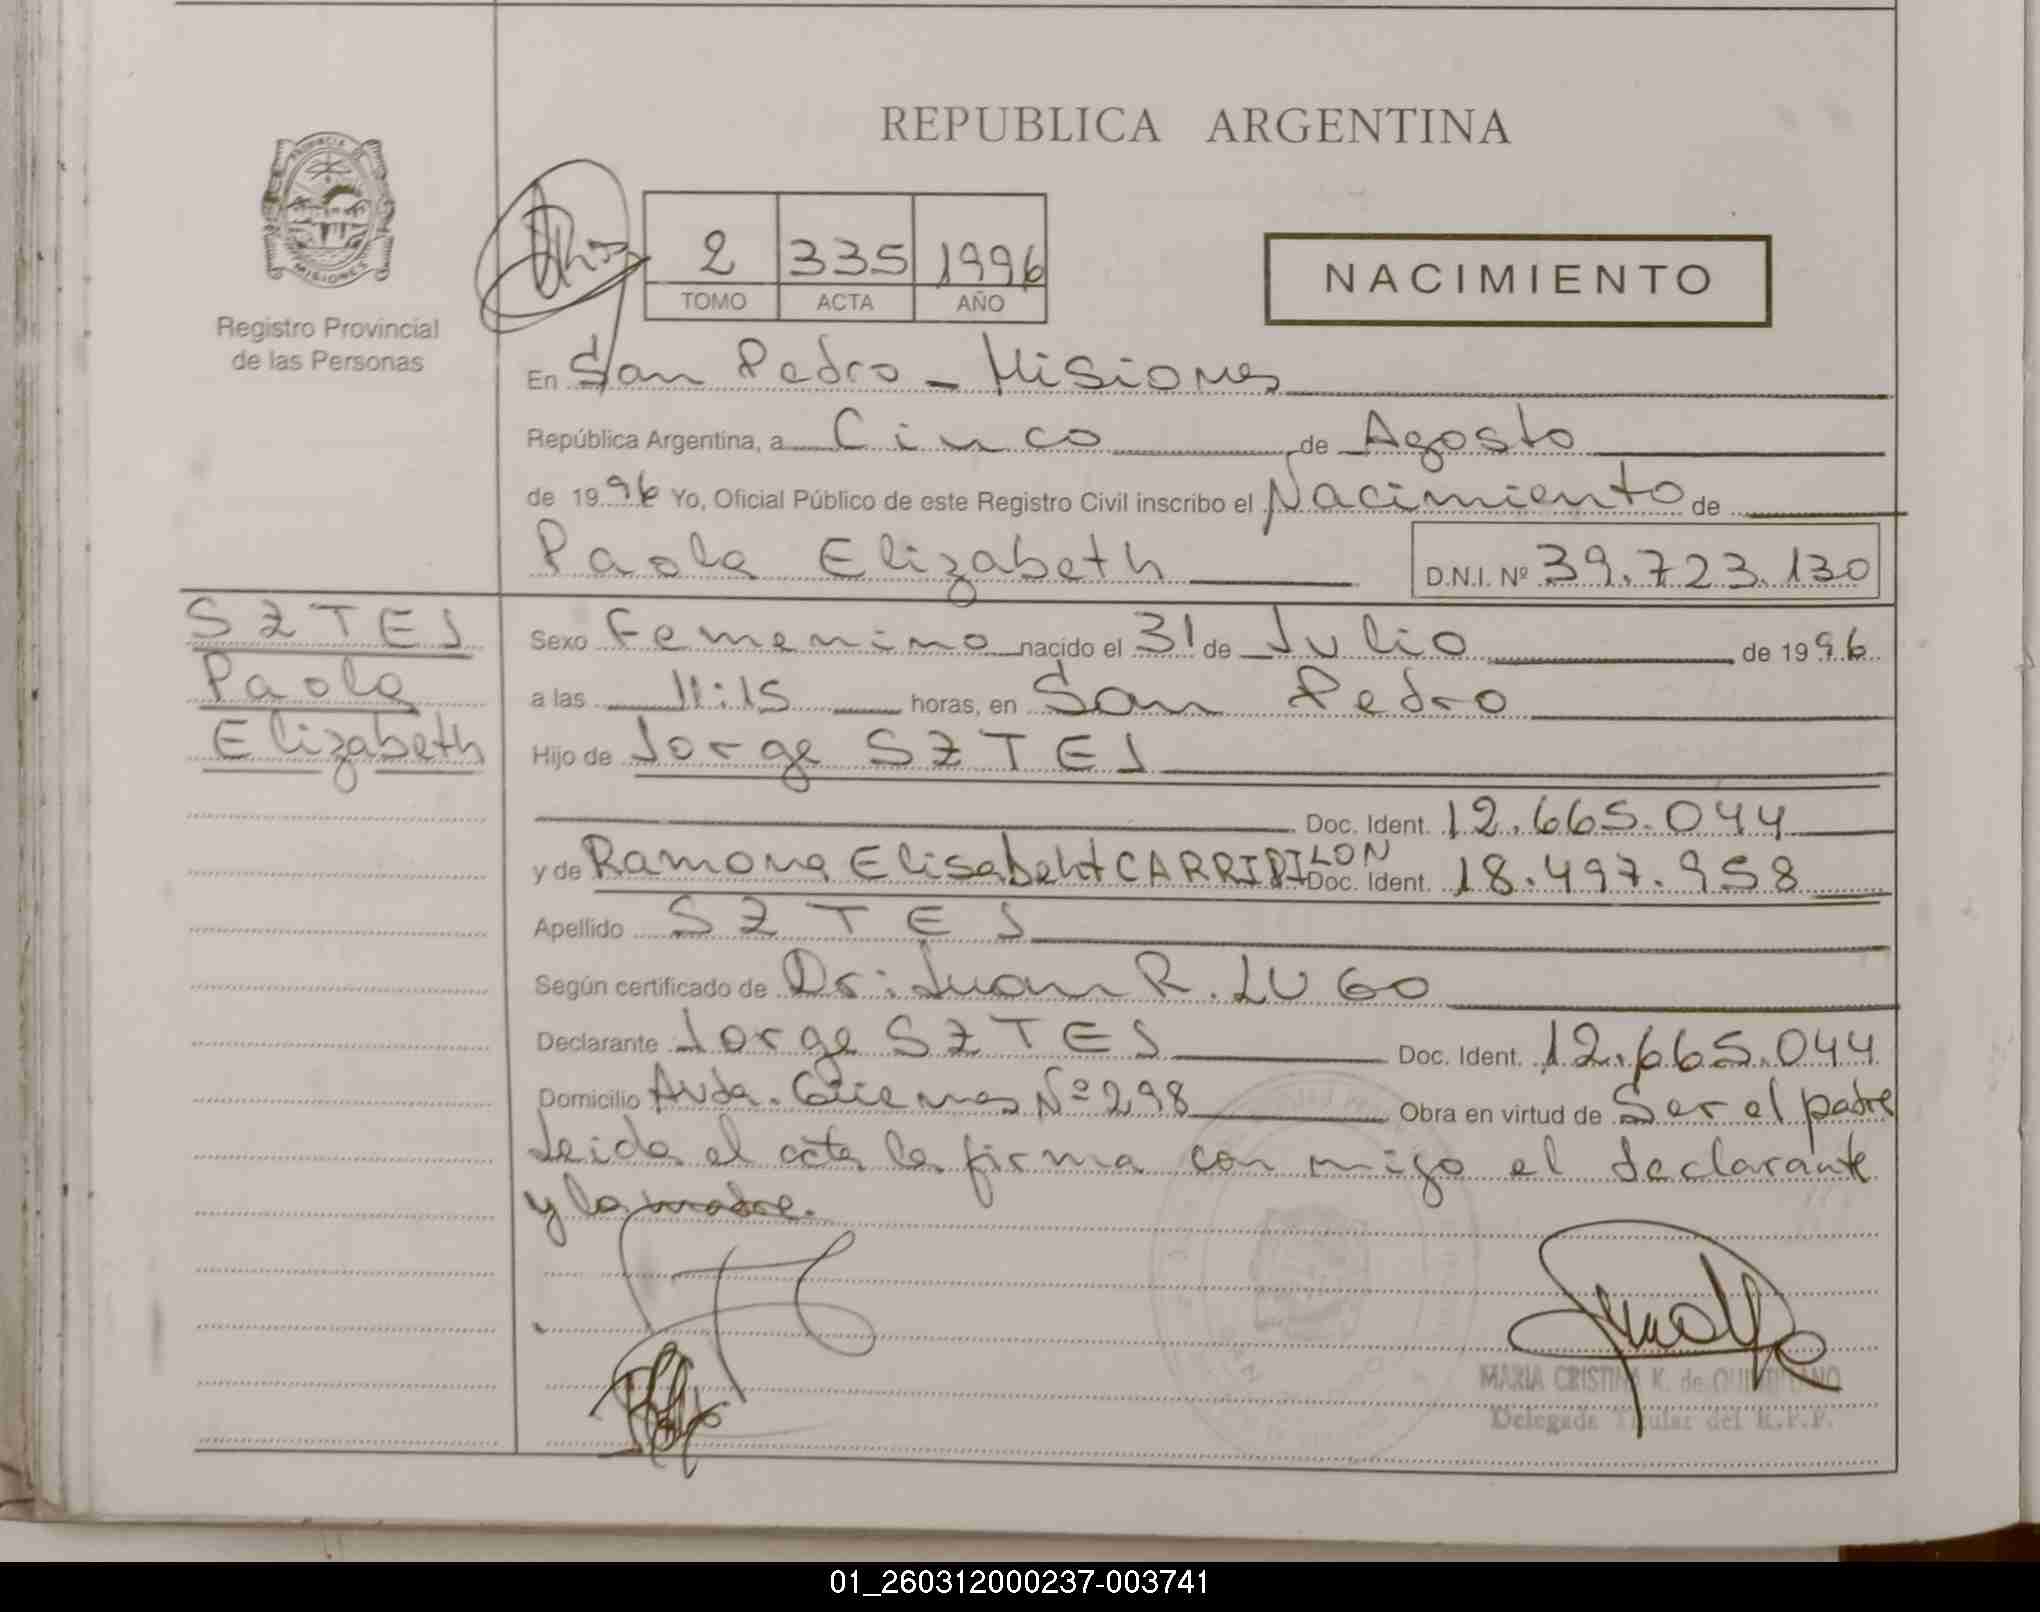 REPUBLICA ARGENTINA
PROVINCIA DE
MISIONES
Registro Provincial
de las Personas
2 335 1996
TOMO ACTA AÑO
NACIMIENTO
En San Pedro - Misiones
República Argentina, a Cinco de Agosto
de 1996 Yo, Oficial Público de este Registro Civil inscribo el Nacimiento de
Paola Elizabeth D.N.I. Nº 39.723.130
SZTEJ
Paola
Elizabeth
Sexo Femenino nacido el 31 de Julio de 1996
a las 11:15 horas, en San Pedro
Hijo de Jorge SZTEJ
Doc. Ident. 12.665.044
y de Ramona Elisabeht CARRIPILON Doc. Ident. 18.497.958
Apellido SZTEJ
Según certificado de Dr: Juan R. LUGO
Declarante Jorge SZTEJ Doc. Ident. 12.665.044
Domicilio Avda. Güemes Nº 298 Obra en virtud de Ser el padre
Leida el acta la firma con migo el declarante
y la madre.
MARIA CRISTINA K. de QUINTANO
Delegada Titular del R.P.P.
01_260312000237-003741